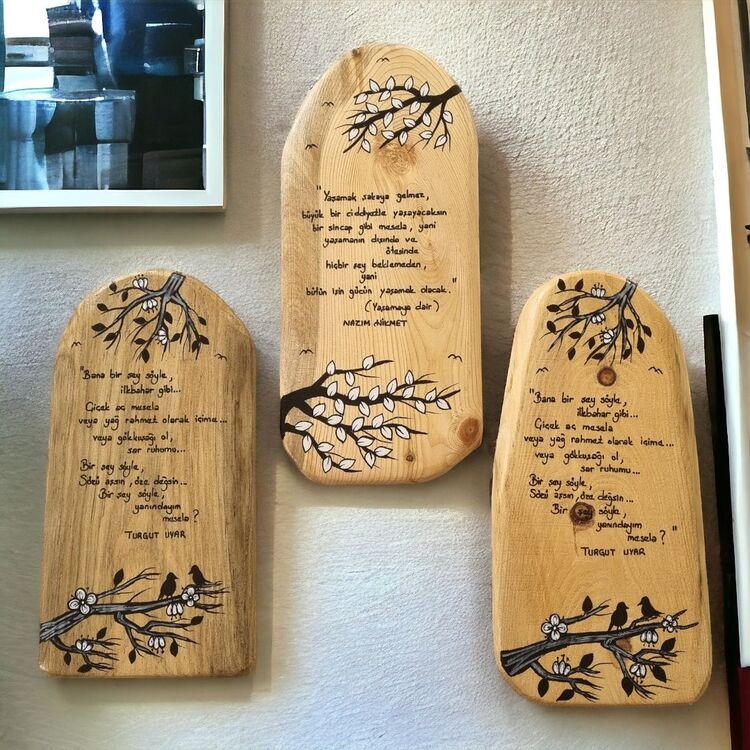 "Bana bir şey söyle,
ilkbahar gibi...
Çiçek aç mesela
veya yağ rahmet olarak içime...
veya gökkuşağı ol,
sar ruhumu...
Bir şey söyle,
Sözü aşsın, öze değsin...
Bir şey söyle,
yanındayım
mesela?
TURGUT UYAR
"Yaşamak şakaya gelmez,
büyük bir ciddiyetle yaşayacaksın
bir sincap gibi mesela, yani
yaşamanın dışında ve
ötesinde
hiçbir şey beklemeden,
yani
bütün işin gücün yaşamak olacak."
(Yaşamaya dair)
NAZIM HİKMET
"Bana bir şey söyle,
ilkbahar gibi...
Çiçek aç mesela
veya yağ rahmet olarak içime...
veya gökkuşağı ol,
sar ruhumu...
Bir şey söyle,
Sözü aşsın, öze değsin...
Bir şey söyle,
yanındayım
mesela?"
TURGUT UYAR